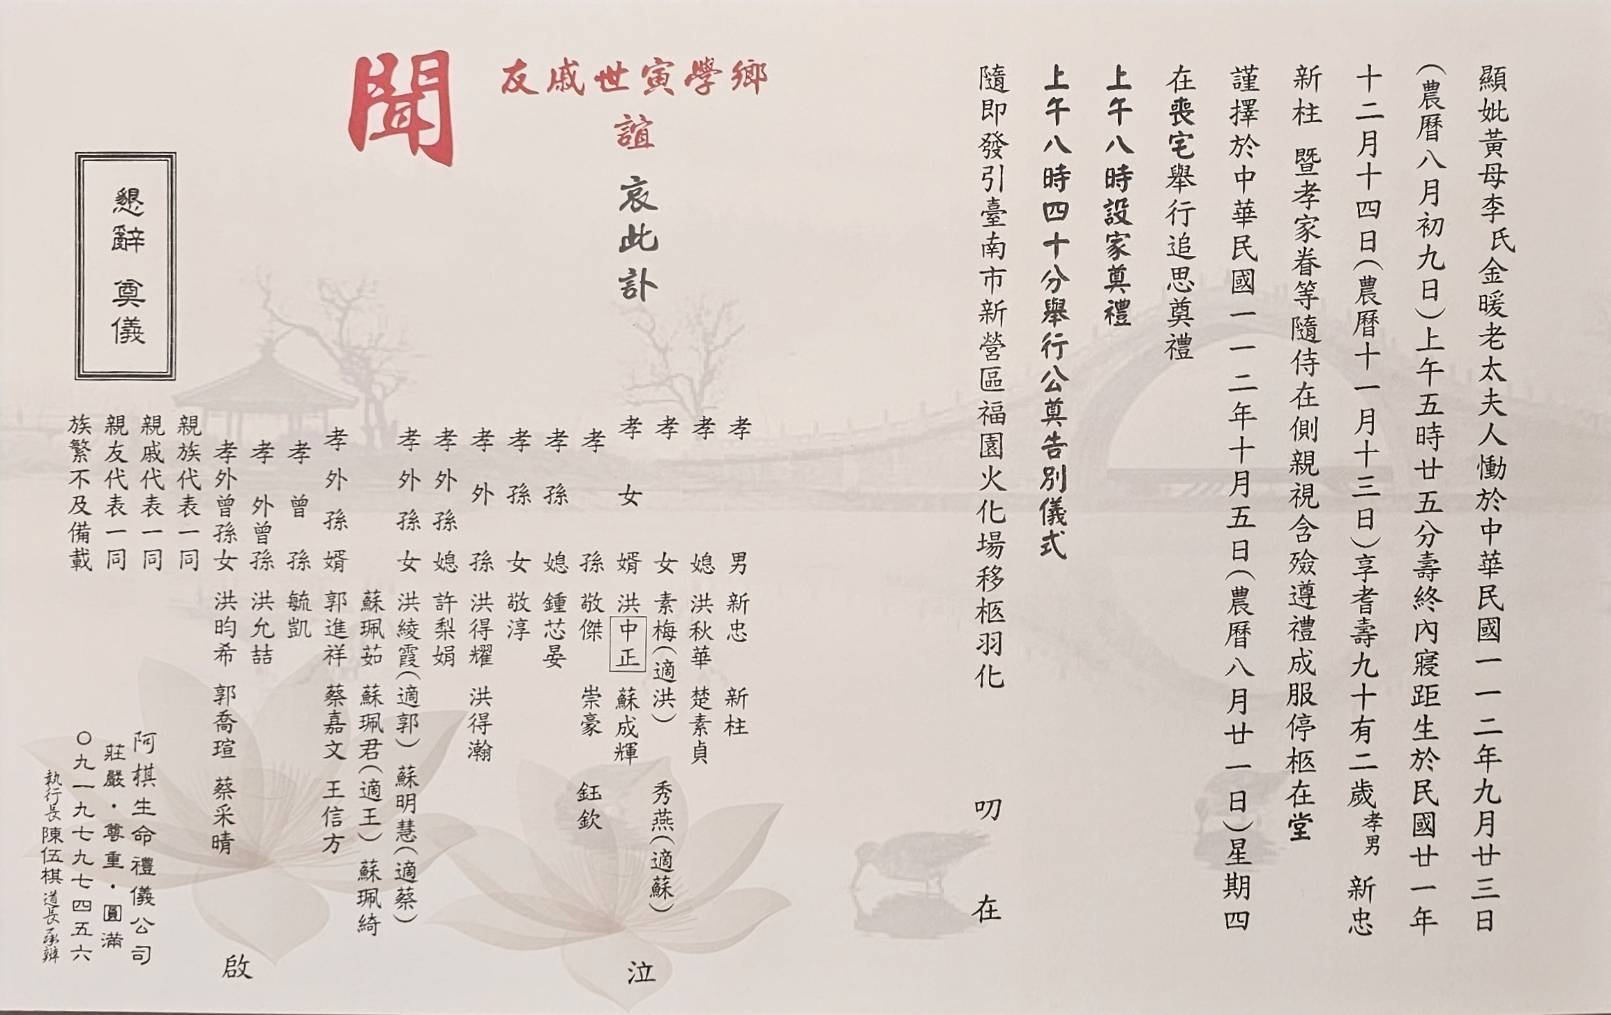 顯妣黃母李氏金暖老太夫人慟於中華民國一一二年九月廿三日
(農曆八月初九日)上午五時廿五分壽終內寢距生於民國廿一年
十二月十四日(農曆十一月十三日)享耆壽九十有二歲孝男 新忠
新柱 暨孝家眷等隨侍在側親視含殮遵禮成服停柩在堂
謹擇於中華民國一一二年十月五日(農曆八月廿一日)星期四
在喪宅舉行追思奠禮
上午八時設家奠禮
上午八時四十分舉行公奠告別儀式
隨即發引臺南市新營區福園火化場移柩羽化
叨在
鄉學寅世戚友
誼 哀此訃
聞
孝男 新忠 新柱
孝媳 洪秋華 楚素貞
孝女 素梅(適洪) 秀燕(適蘇)
孝女婿 洪中正 蘇成輝
孝孫 敬傑 崇豪 鈺欽
孝孫媳 鍾芯晏
孝孫女 敬淳
孝外孫 洪得耀 洪得瀚
孝外孫媳 許梨娟
孝外孫女 洪綾霞(適郭) 蘇明慧(適蔡)
蘇珮茹 蘇珮君(適王) 蘇珮綺
孝外孫婿 郭進祥 蔡嘉文 王信方
孝曾孫 毓凱
孝外曾孫 洪允喆
孝外曾孫女 洪昀希 郭喬瑄 蔡采晴
親族代表一同
親戚代表一同
親友代表一同
族繁不及備載
泣
啟
懇辭 奠儀
阿棋生命禮儀公司
莊嚴・尊重・圓滿
〇九一九七九七四五六
執行長陳伍棋道長承辦